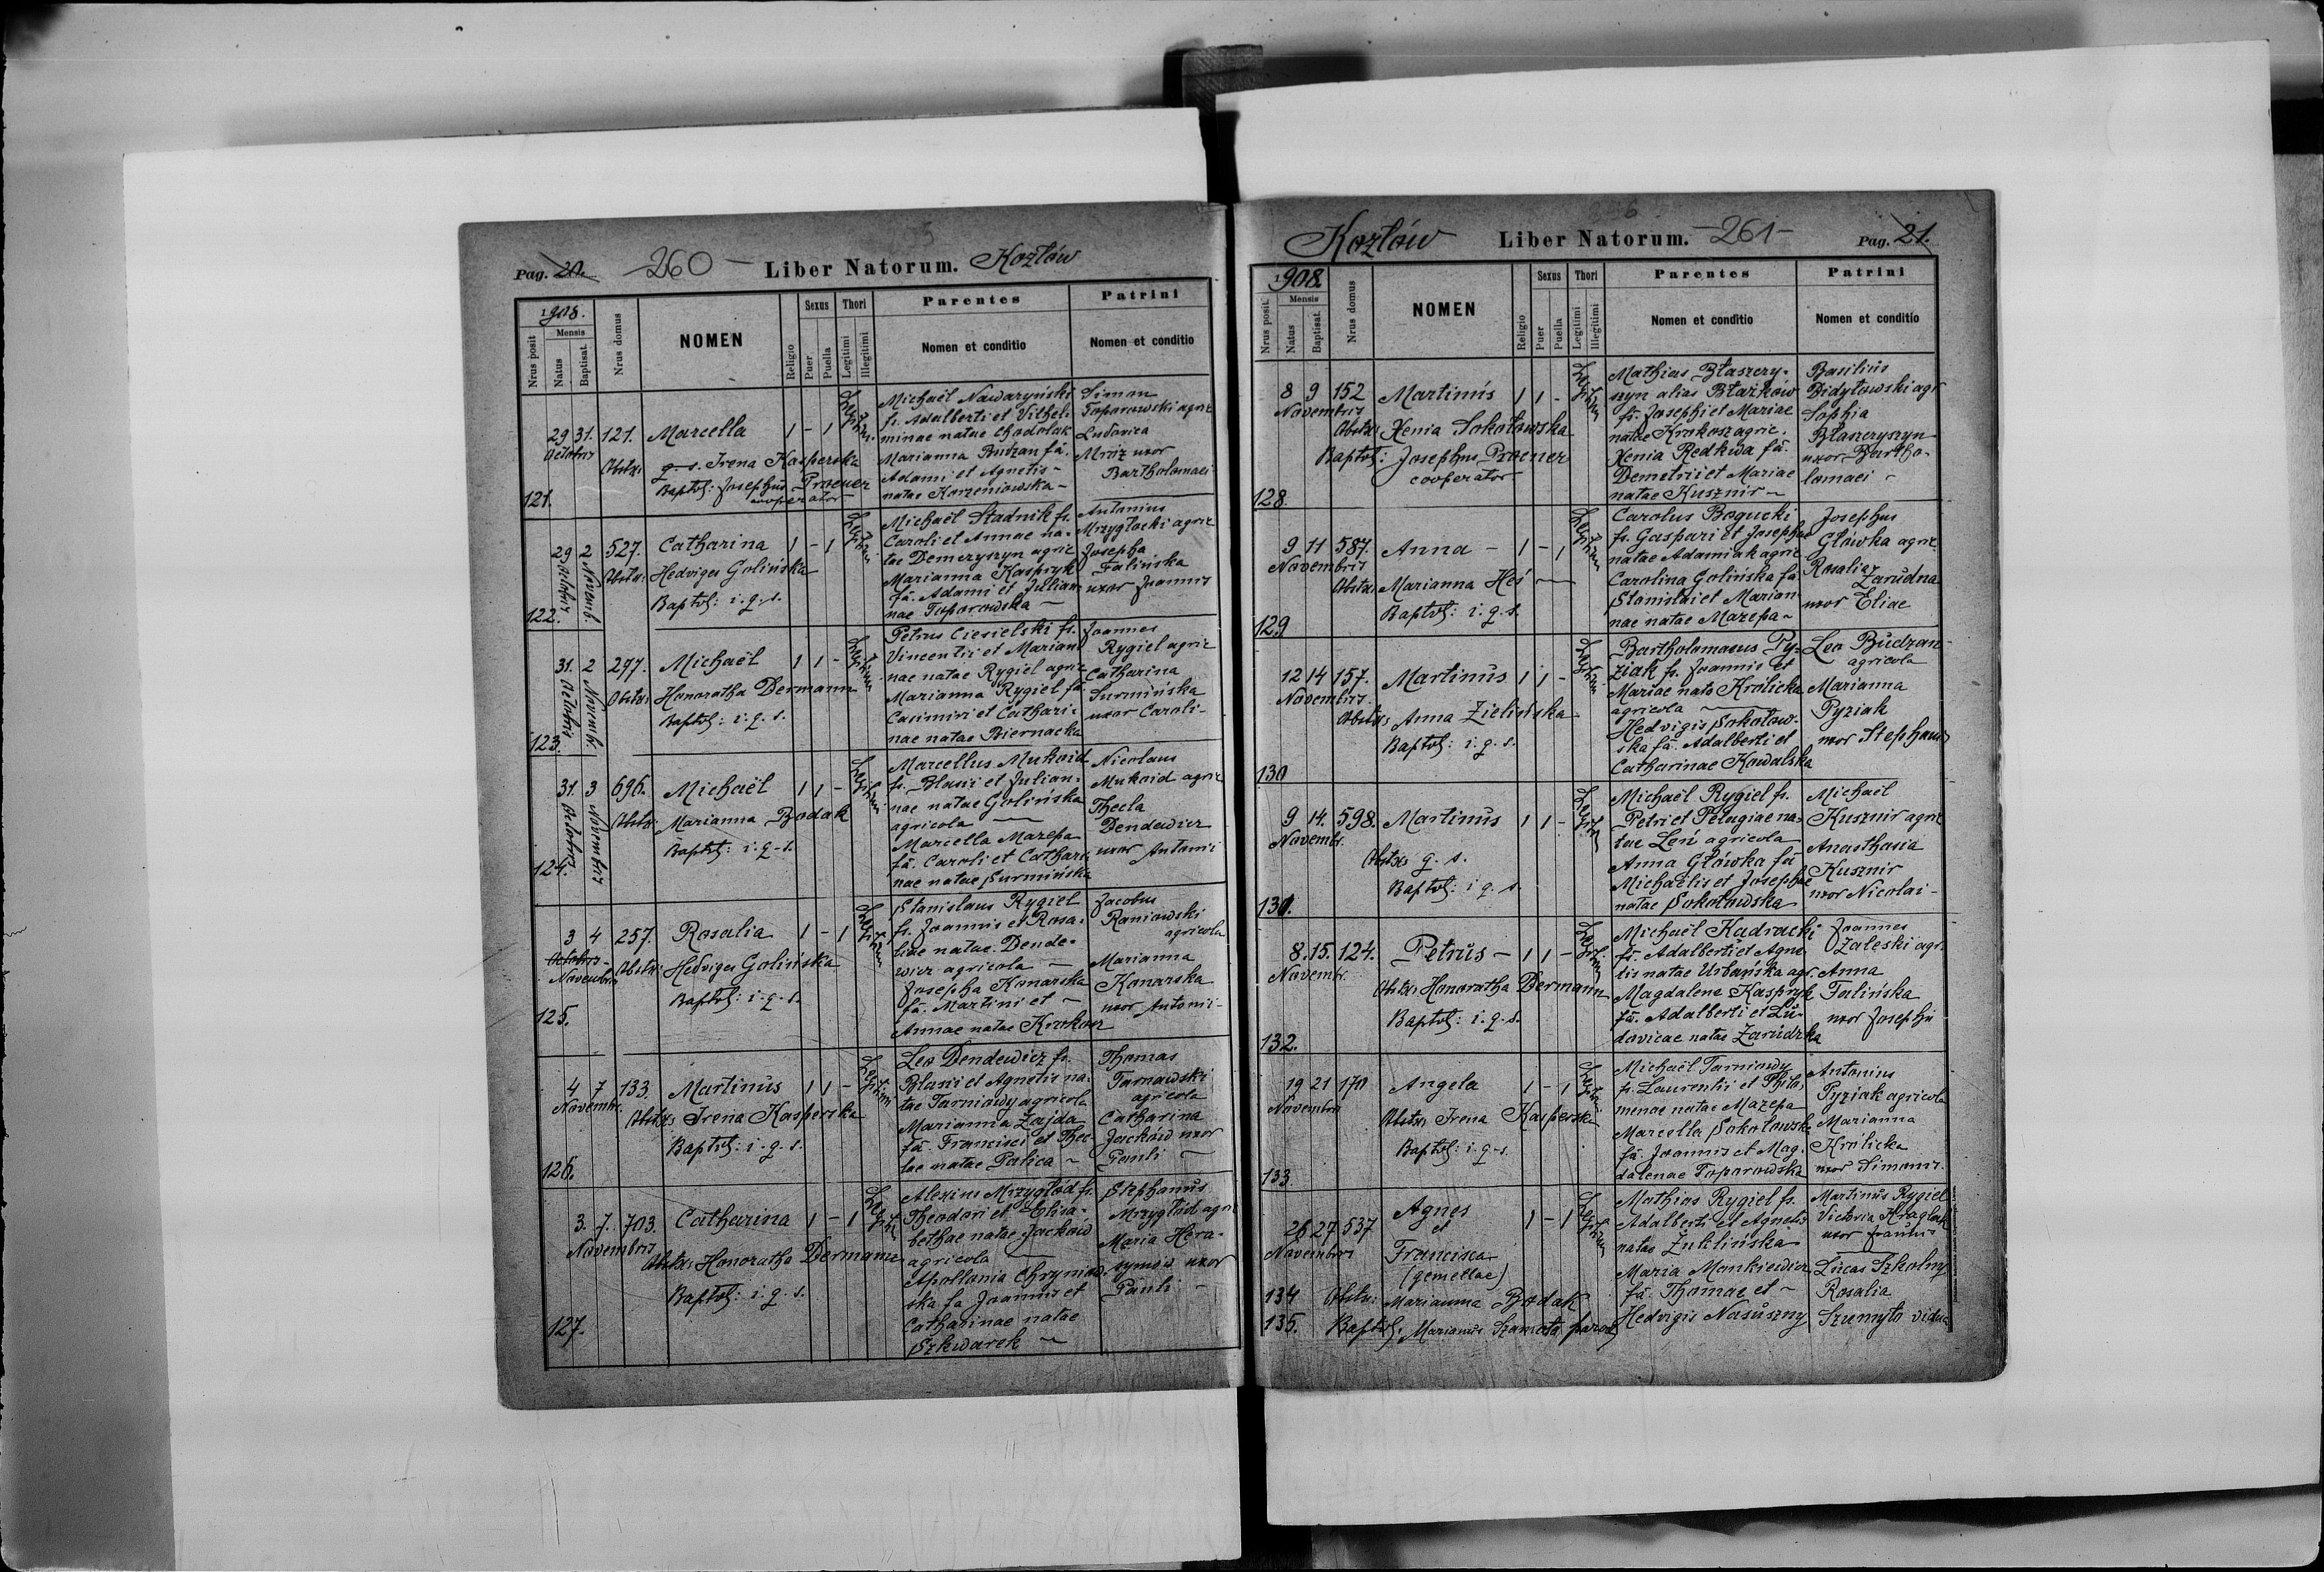 Pag. 20. -260- Liber Natorum. Kozłów
1908.
Mensis
Nrus posit
Natus
Baptisat.
Nrus domus
NOMEN
Religio
Sexus
Puer
Puella
Thori
Legitimi
Illegitimi
Parentes
Nomen et conditio
Patrini
Nomen et conditio
121.
29 31. 121. Marcella 1 - 1
Octobris
Obstx: q. s. Irena Kasperska
Baptes: Josephus Proener
cooperator
Michaël Nawaryński
fs. Adalberti et Vilhel-
minae natae Chodolak
Marianna Budzan fa.
Adami et Agnetis -
natae Korzeniowska -
Simon
Toporowski agric
Ludovica
Mróz uxor
Bartholomaei
122.
29 2 527. Catharina 1 - 1
Octobris Novemb.
Obstx: Hedviges Golińska
Bapts: i. q. s.
Michaël Stadnik fs.
Caroli et Annae na-
tae Demczyszyn agric
Marianna Kaspryk
fa. Adami et Julian-
nae Toporowska -
Antonius
Mrzygłocki agric
Josepha
Falińska
uxor Joannis
123.
31. 2 297. Michaël 1 1 -
Octobris Novembr.
Obstx: Honoratha Dermann
Bapts: i. q. s.
Petrus Ciesielski fs.
Vincentii et Marian-
nae natae Rygiel agric
Marianna Rygiel fa.
Casimiri et Cathari-
nae natae Biernacka
Joannes
Rygiel agric
Catharina
Surmińska
uxor Caroli -
124.
31. 3 696. Michaël 1 1 -
Octobris Novembris
Obstx: Marianna Bodak
Bapts: i. q. s.
Marcellus Mukoid
fs. Blasii et Julian-
nae natae Golińska
agricola -
Marcella Mazepa
fa. Caroli et Cathari-
nae natae Surmińska
Nicolaus
Mukoid agric
Thecla
Dendewicz
uxor Antonii
125.
3 4 257. Rosalia 1 - 1
Octobris -
Novembris
Obstx: Hedviges Golińska
Bapts: i. q. s.
Stanislaus Rygiel
fs. Joannis et Rosa-
liae natae Dende-
wicz agricola -
Josepha Konarska
fa. Martini et -
Annae natae Krokosz
Jacobus
Raniowski
agricola
Marianna
Konarska
uxor Antonii -
126.
4 7 133. Martinus 1 1 -
Novembr.
Obstx: Irena Kasperska
Bapts: i. q. s.
Leo Dendewicz fs.
Blasii et Agnetis na-
tae Tarniowy agricola
Marianna Zajda
fa. Francisci et Thec-
lae natae Palica -
Thomas
Tarnawski
agricola
Catharina
Jacków uxor
Pauli -
127.
3. 7. 703. Catharina 1 - 1
Novembris
Obstx: Honoratha Dermann
Bapts: i. q. s.
Alexius Mrzygłod fs.
Theodori et Elisa-
bethae natae Jacków
agricola -
Apollonia Chryniow-
ska fa Joannis et
Catharinae natae
Szkwarek -
Stephanus
Mrzygłód agric
Maria Hera-
symów uxor
Pauli -
Kozłów Liber Natorum. -261- Pag. 21.
1908.
Mensis
Nrus posit.
Natus
Baptisat.
Nrus domus
NOMEN
Religio
Sexus
Puer
Puella
Thori
Legitimi
Illegitimi
Parentes
Nomen et conditio
Patrini
Nomen et conditio
128
8 9 152 Martinus 1 1 -
Novembris
Obstx: Xenia Sokołowska
Bapts: Josephus Proener
cooperator
Mathias Błaszczy-
szyn alias Błażków
fs. Josephi et Mariae
natae Krokosz agric.
Xenia Redkwa fa.
Demetrii et Mariae
natae Kusznir -
Basilius
Didyłowski agr
Sophia
Błaszczyszyn
uxor Bartho-
lomaei -
129
9 11 587. Anna - 1 - 1
Novembris
Obstx: Marianna Heś -
Bapts: i. q. s.
Carolus Bogucki
fs. Gaspari et Josephae
natae Adamiak agric
Carolina Golińska fa.
Stanislai et Marian-
nae natae Mazepa -
Josephus
Główka agric.
Rosalia
Zarudna
uxor Eliae
130
12 14 157. Martinus 1 1 -
Novembris
Obstx: Anna Zielińska
Bapts: i. q. s.
Bartholomaeus Py-
ziak fs. Joannis et
Mariae nata Krolicka
agricola -
Hedvigis Sokołow-
ska fa. Adalberti et
Catharinae Kowalska
Leo Budzan -
agricola
Marianna
Pyziak
uxor Stephani
131.
9 14. 598. Martinus 1 1 -
Novembr.
Obstx: q. s.
Bapts: i. q. s.
Michaël Rygiel fs.
Petri et Pelagiae na-
tae Leń agricola
Anna Główka fa
Michaelis et Josephae
natae Sokołowska
Michaël
Kusznir agric
Anasthasia
Kusznir
uxor Nicolai -
132.
8. 15. 124. Petrus - 1 1 -
Novembr.
Obstx: Honoratha Dermann
Bapts: i. q. s.
Michaël Kadracki
fs. Adalberti et Agne-
tis natae Urbańska agr.
Magdalena Kaspryk
fa. Adalberti et Lu-
dovicae natae Zarudzka
Joannes
Zaleski agr.
Anna
Falińska
uxor Josephi
133
19 21 170 Angela 1 - 1
Novembris
Obstx: Irena Kasperska
Bapts: i. q. s.
Michaël Tarniowy
fs. Laurentii et Philo-
menae natae Mazepa
Marcella Sokołowska
fa. Joannis et Mag-
dalenae Toporowska
Antonius
Pyziak agricola
Marianna
Krolicka
uxor Simonis.
134
135.
26 27 537 Agnes 1 - 1
et
Novembris Francisca
(gemellae)
Obstx: Marianna Bodak
Bapts: Marianus Szameta paroch
Mathias Rygiel fs.
Adalberti et Agnetis
natae Zuklińska
Maria Mankiewicz
fa. Thomae et -
Hedvigis Nasuszny
Martinus Rygiel
Victoria Kraglak
uxor Joannis
Lucas Szkolny
Rosalia
Szumyło vidua